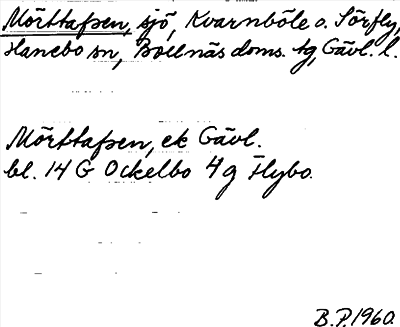 Mörttapen, sjö, Kvarnböle o. Sörfly,
Hanebo sn, Bollnäs doms. tg, Gävl. l.
Mörttapen, ek Gävl.
bl. 14 G Ockelbo 4 g Flybo.
B.P. 1960.